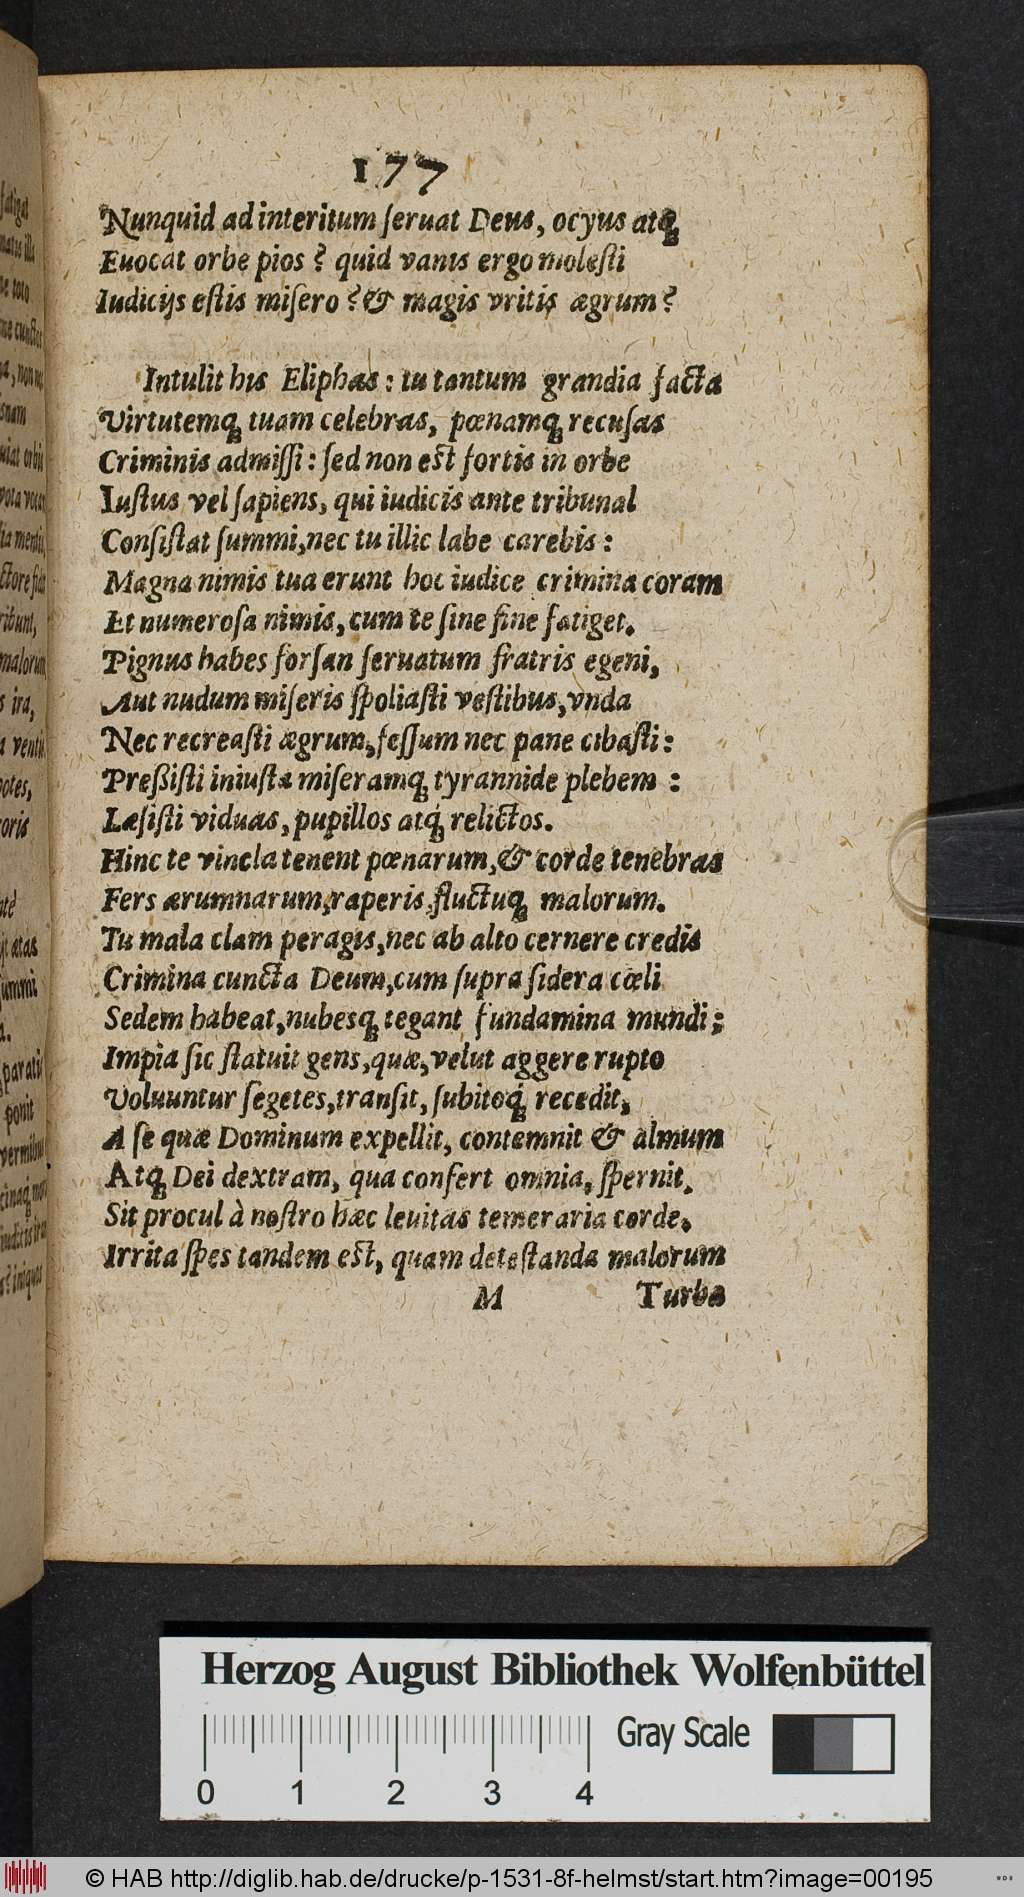 177
Nunquid ad interitum ſeruat Deus, ocyus atq;
Euocat orbe pios? quid vanis ergo moleſti
Iudicijs eſtis miſero? & magis vritis ægrum?
Intulit his Eliphas: tu tantum grandia facta
Virtutemq; tuam celebras, pœnamq; recuſas
Criminis admiſſi: ſed non est fortis in orbe
Iuſtus vel ſapiens, qui iudicis ante tribunal
Conſiſtat ſummi, nec tu illic labe carebis:
Magna nimis tua erunt hoc iudice crimina coram
Et numeroſa nimis, cum te ſine fine fatiget.
Pignus habes forſan ſeruatum fratris egeni,
Aut nudum miſeris ſpoliaſti veſtibus, vnda
Nec recreaſti ægrum, feſſum nec pane cibaſti:
Preßiſti iniuſta miſeramq; tyrannide plebem:
Læſiſti viduas, pupillos atq́; relictos.
Hinc te vincla tenent pœnarum, & corde tenebras
Fers ærumnarum, raperis fluctuq; malorum.
Tu mala clam peragis, nec ab alto cernere credis
Crimina cuncta Deum, cum ſupra ſidera cœli
Sedem habeat, nubesq; tegant fundamina mundi:
Impia ſic ſtatuit gens, quæ, velut aggere rupto
Voluuntur ſegetes, tranſit, ſubitoq́; recedit,
A ſe quæ Dominum expellit, contemnit & almum
Atq; Dei dextram, qua confert omnia, ſpernit.
Sit procul à noſtro hæc leuitas temeraria corde,
Irrita ſpes tandem est, quam deteſtanda malorum
M Turba
Herzog August Bibliothek Wolfenbüttel
Gray Scale
0 1 2 3 4
© HAB http://diglib.hab.de/drucke/p-1531-8f-helmst/start.htm?image=00195